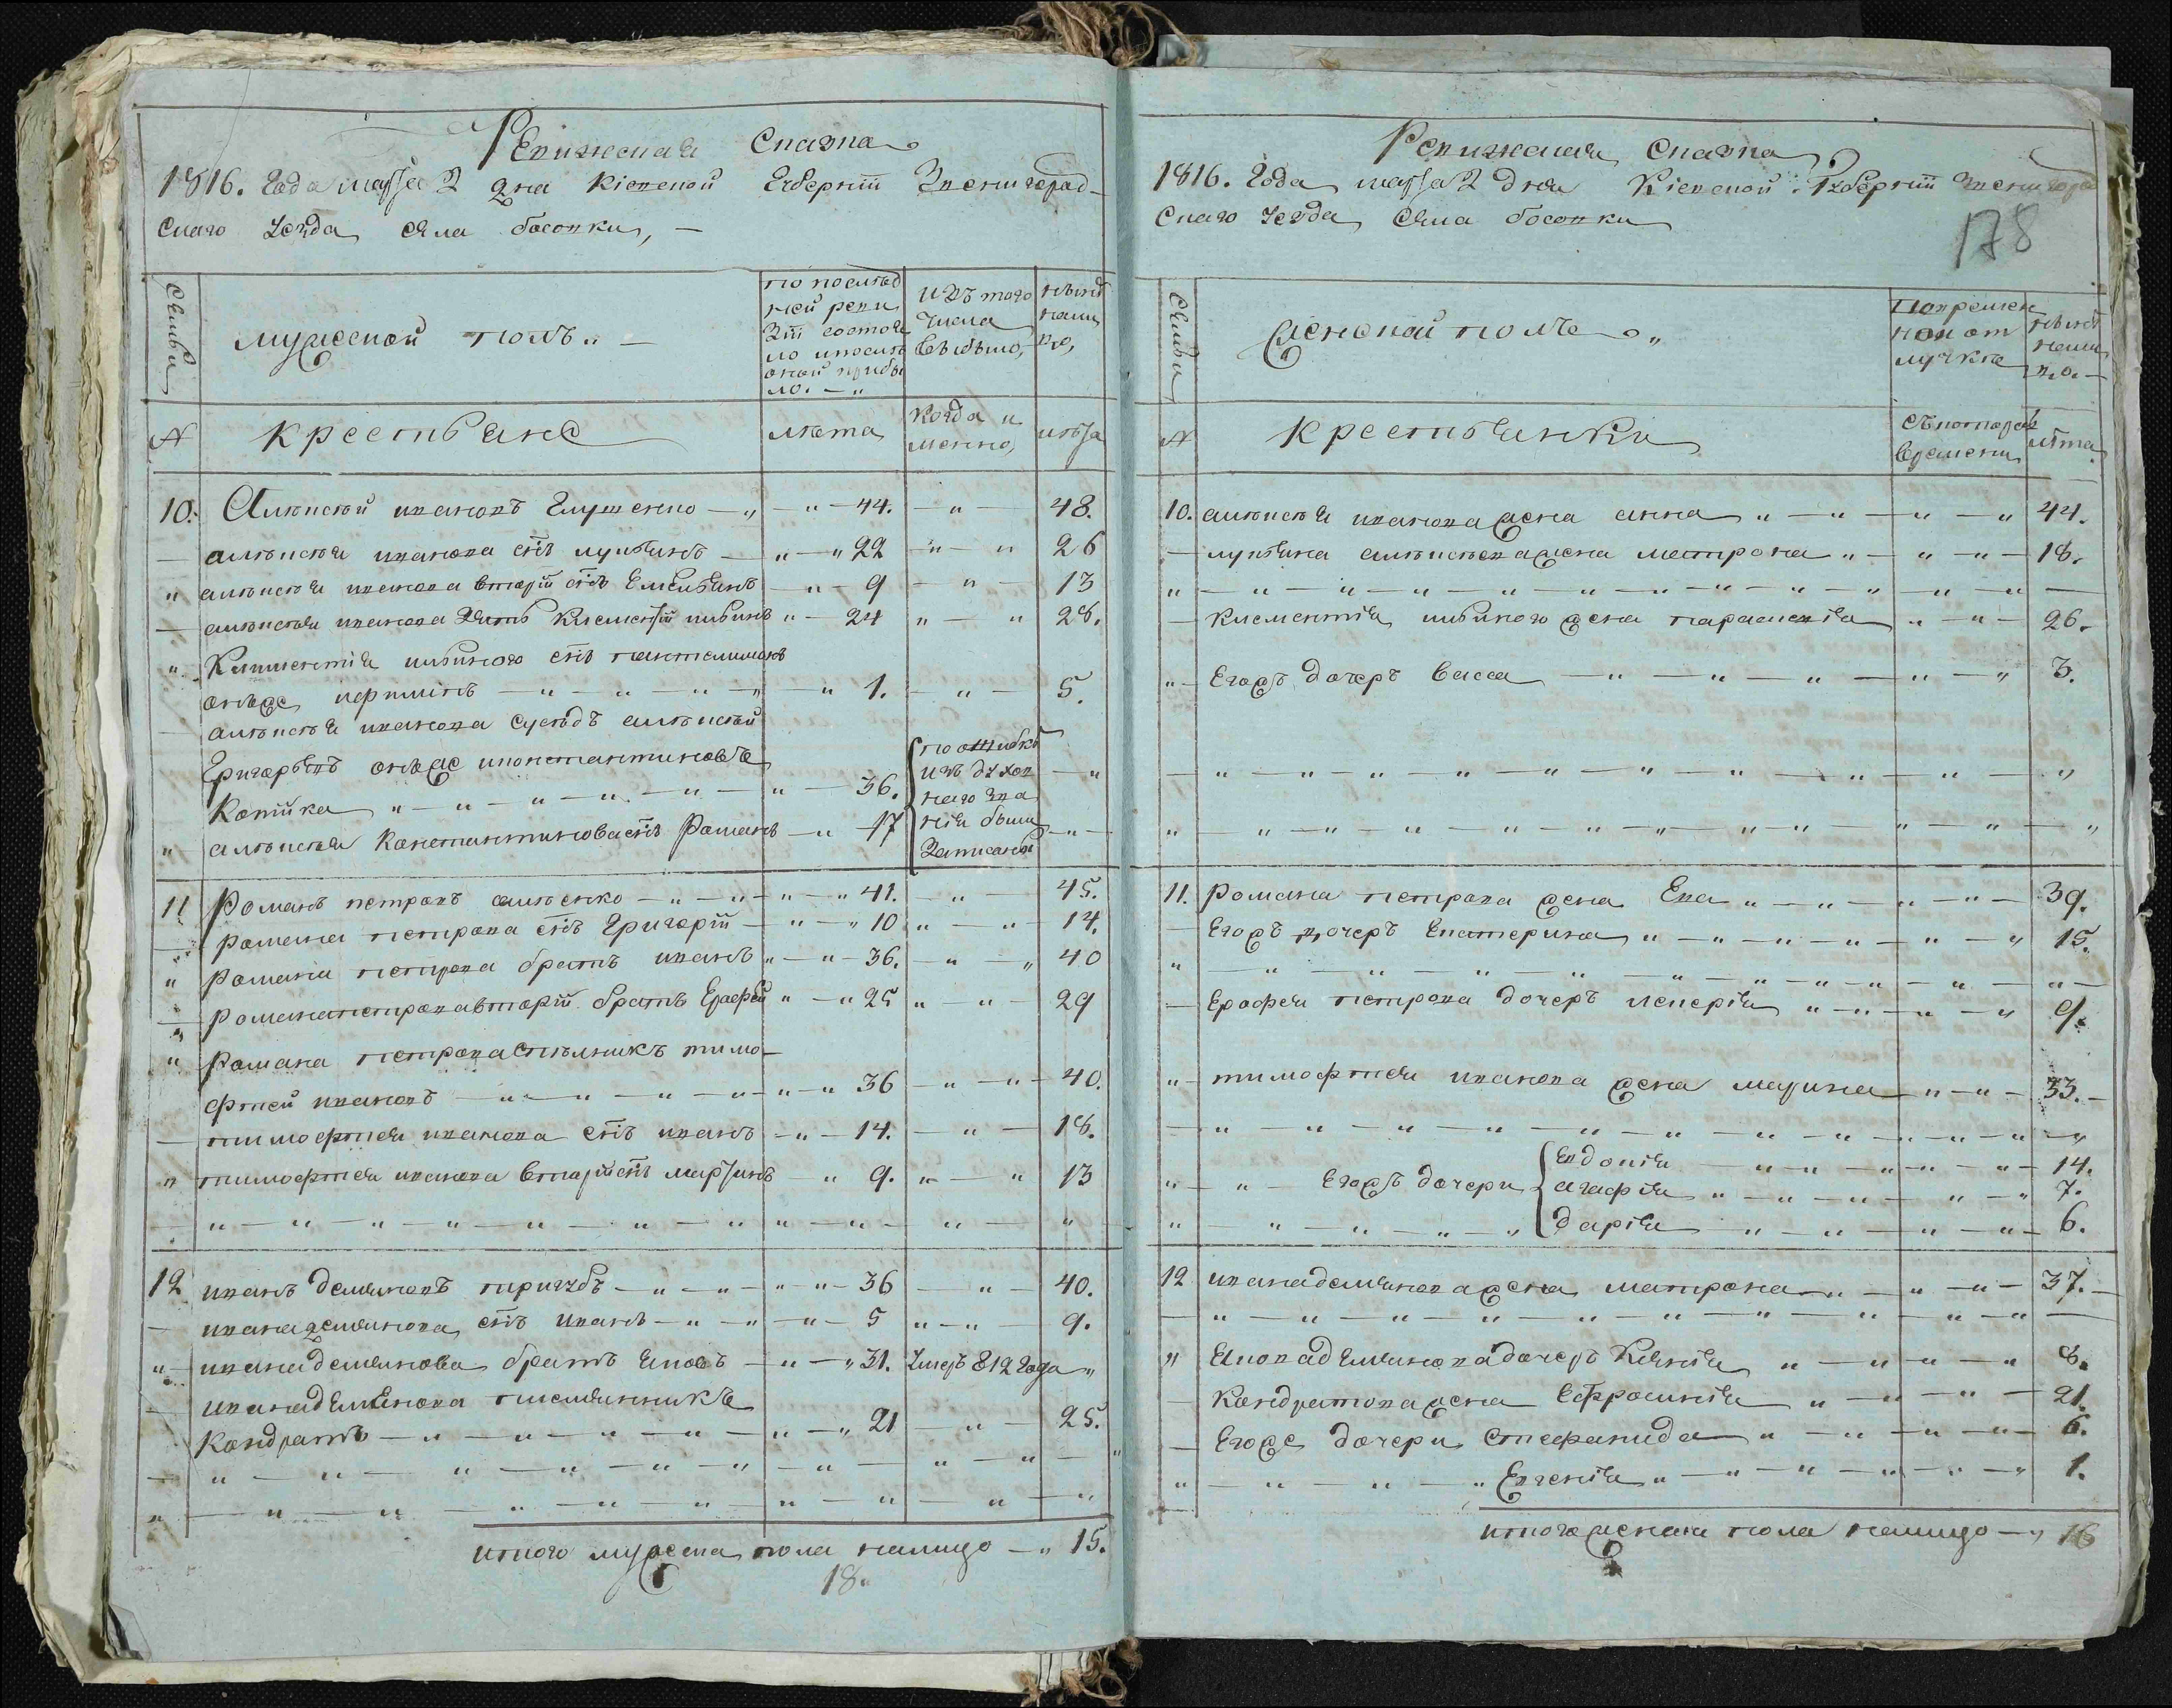 Ревижская Сказка
1816. Года марта 2 дня Кіевской Губерніи Звенигород-
скаго уезда села босовки,
Семьи
мужеской полъ
по послед
ней реви
зіи состоя
ло и после
оной прибы
ло.
изъ того
числа
выбыло,
ныне
нали
цо,
№
крестьяне
лета
когда и
менно,
лета
10. Алексей ивановъ Глущенко 44. 48.
алексея иванова сынъ лукьянъ 22 26
алексея иванова вторій сынъ Емельянъ 9 13
алексея иванова зять Климентій 24 28.
Климентія сынъ пантелимонъ
онъже 1. 5.
алексея иванова суседъ алексей
Григорьевъ онъже и константиновъ
Котика 36.
по ошибке
изъ духов
наго зва
нія были
Записаны
алексея Константинова сынъ Романъ 17
11 Романъ петровъ алесенко 41. 45.
романа петрова сынъ Григорій 10 14.
романа петрова братъ иванъ 36. 40
романа петрова вторій братъ Ерофей 25 29
Романа петрова тимо
фтей ивановъ 36 40.
тимофтея иванова сынъ иванъ 14. 18.
тимофтея иванова вторій сынъ мартинъ 9. 13
12 иванъ демяновъ пригубъ 36 40.
ивана демянова сынъ иванъ 5 9.
ивана демянова братъ яковъ 31. умеръ 812 года
ивана демянова племянникъ
Кондратъ 21 25.
итого мужеска пола налицо 15.
18
Ревижская Сказка
178
1816. Года марта 2 дня Кіевской Губерніи Звенигород
скаго уезда села босовки
Семьи
женской полъ
Повремен
ной от
лучке
ныне
нали
цо.
№
крестьянки
Съкотораго
времени
лета
10. алексея иванова жена анна 44.
лукьяна алексеева жена матрона 18.
Климентія жена параскевія 26.
Егожъ дочеръ васса 3.
11. романа петрова жена Ева 39.
Егожъ дочеръ Екатерина 15.
Ерофея петрова дочеръ 9.
тимофтея иванова жена марина 33.
Егожъ дочери Евдокія 14.
агафія 7.
дарія 6.
12 ивана демянова жена матрона 37.
Якова демянова дочеръ Ксенія 8.
Кондратова жена Ефросинія 21.
Егоже дочери стефанида 6.
Евгенія 1.
итого женска пола налицо 16